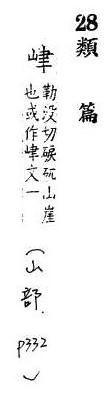 28 類篇
峍
勒没切硉矹山崖
也或作峍文一
(山部. p332)